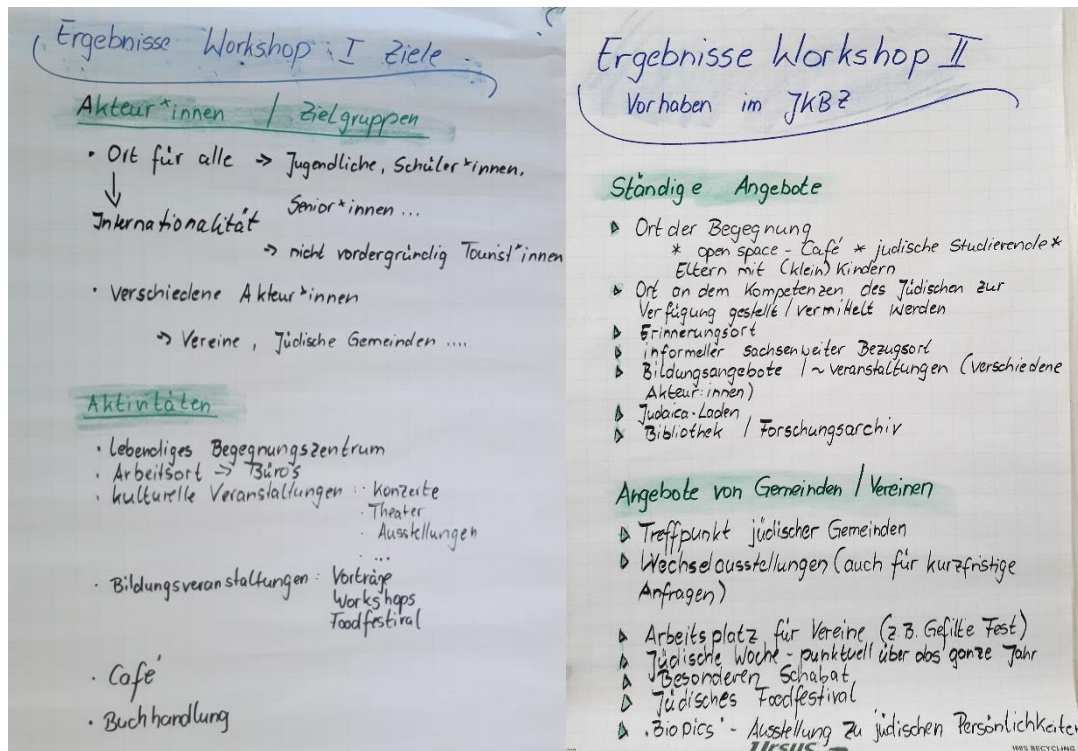 Ergebnisse Workshop I Ziele
Akteur*innen / Zielgruppen
• Ort für alle → Jugendliche, Schüler*innen,
Senior*innen ...
↓
Internationalität
→ nicht vordergründig Tourist*innen
• verschiedene Akteur*innen
→ Vereine, Jüdische Gemeinden ....
Aktivitäten
• lebendiges Begegnungszentrum
• Arbeitsort → Büro's
• kulturelle Veranstaltungen : · Konzerte
· Theater
· Ausstellungen
· ...
• Bildungsveranstaltungen : Vorträge
Workshops
Foodfestival
• Café
• Buchhandlung
Ergebnisse Workshop II
Vorhaben im JKBZ
Ständige Angebote
▷ Ort der Begegnung
* open space - Café * judische Studierende *
Eltern mit (klein) Kindern
▷ Ort an dem Kompetenzen des Jüdischen zur
Verfügung gestellt / vermittelt werden
▷ Erinnerungsort
▷ informeller sachsenweiter Bezugsort
▷ Bildungsangebote / ~ veranstaltungen (verschiedene
Akteur:innen)
▷ Judaica-Laden
▷ Bibliothek / Forschungsarchiv
Angebote von Gemeinden / Vereinen
▷ Treffpunkt jüdischer Gemeinden
▷ Wechselausstellungen (auch für kurzfristige
Anfragen)
▷ Arbeitsplatz für Vereine (z.B. Gefilte Fest)
▷ Jüdische Woche - punktuell über das ganze Jahr
▷ Besonderen Schabat
▷ Jüdisches Foodfestival
▷ "Biopics" - Ausstellung zu jüdischen Persönlichkeiten
Ursus
100% RECYCLING